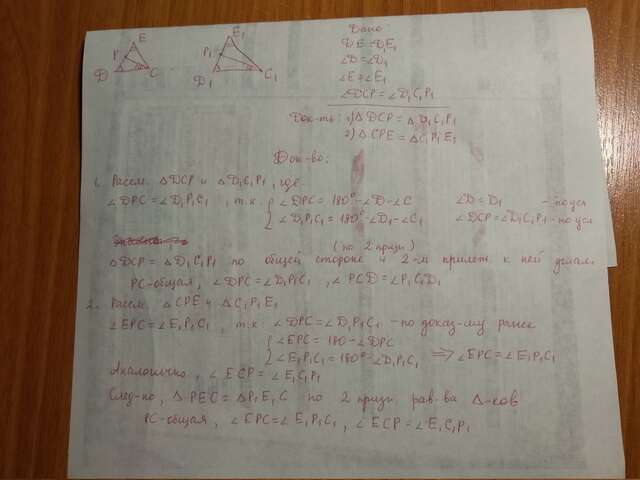 E
P
D
C
E1
P1
D1
C1
Дано:
DE = D1E1
∠D = ∠D1
∠E = ∠E1
∠DCP = ∠D1C1P1
Док-ть: 1) △DCP = △D1C1P1
2) △CPE = △C1P1E1
Док-во:
1. Рассм. △DCP и △D1C1P1, где
∠DPC = ∠D1P1C1, т.к. { ∠DPC = 180° - ∠D - ∠C ∠D = D1 - по усл
∠D1P1C1 = 180° - ∠D1 - ∠C1 ∠DCP = ∠D1C1P1 - по усл
(по 2 призн.)
△DCP = △D1C1P1 по общей стороне и 2-м прилеж. к ней углам
PC - общая, ∠DPC = ∠D1P1C1, ∠PCD = ∠P1C1D1
2. Рассм. △CPE и △C1P1E1
∠EPC = ∠E1P1C1, т.к ∠DPC = ∠D1P1C1 - по доказ-му ранее
{ ∠EPC = 180 - ∠DPC
∠E1P1C1 = 180° - ∠D1P1C1 => ∠EPC = ∠E1P1C1
Аналогично, ∠ECP = ∠E1C1P1
След-но, △PEC = △P1E1C по 2 призн. рав-ва △-ков
PC - общая, ∠EPC = ∠E1P1C1, ∠ECP = ∠E1C1P1